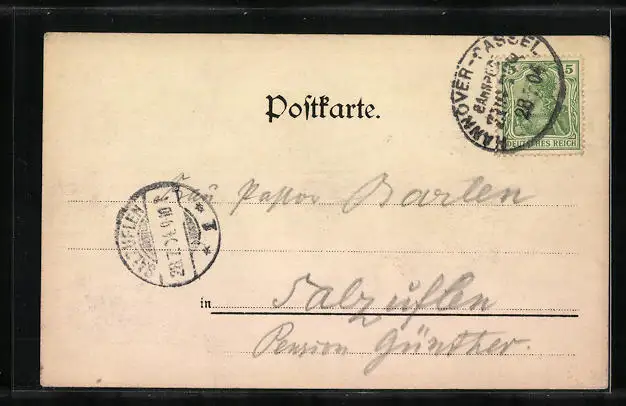 HANNOVER-CASSEL
BAHNPOST
ZUG
28 7 04
5 5
DEUTSCHES REICH
Postkarte.
Frau Pastor Barlen
SALZUFLEN
28.7.04.
* 1 *
in Salzuflen
Pension Günther.